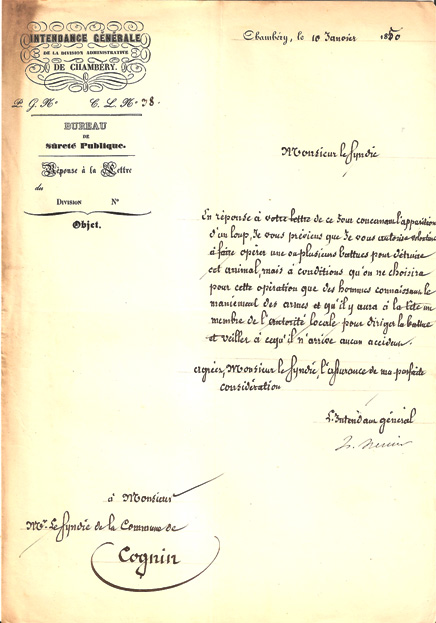 INTENDANCE GÉNÉRALE
DE LA DIVISION ADMINISTRATIVE
DE CHAMBÉRY.
P. G. N° C. L. N° 38.
BUREAU
DE
Sûreté Publique.
Réponse à la Lettre
du
DIVISION N°
Objet.
Chambéry, le 10 Janvier 1850
Monsieur le Syndic
En réponse à votre lettre de ce jour concernant l'apparition
d'un loup, Je vous préviens que Je vous autorise volontiers
à faire opérer une ou plusieurs battues pour détruire
cet animal, mais à conditions qu'on ne choisira
pour cette opération que des hommes connaissant le
maniement des armes et qu'il y aura à la tête un
membre de l'autorité locale pour diriger la battue
et veiller à cequ'il n'arrive aucun accident.
agréez, Monsieur le Syndic, l'assurance de ma parfaite
considération
L'Intendant général
à Monsieur
Mr. Le Syndic de la Commune de
Cognin